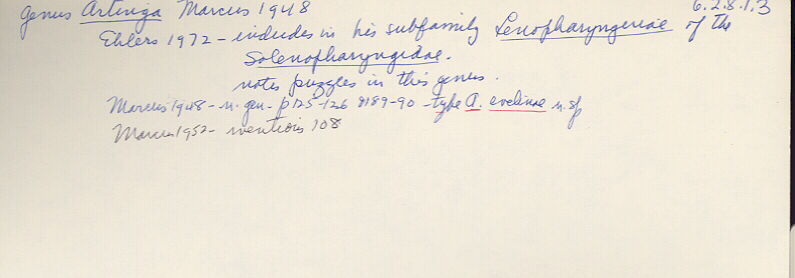 Genus Artinga Marcus 1948 6.2.8.1.3
Ehlers 1972 - includes in his subfamily Lenopharyngeae of the
Solenopharyngidae.
notes puzzles in this genus.
Marcus 1948 - n. gen - p125-126 189-90 - type A. evelinae n. sp
Marcus 1952 - mentions 108